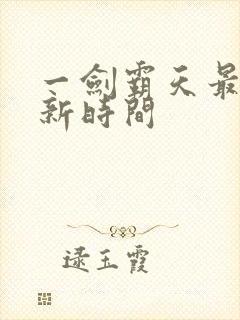 一劍霸天最
新時間
逯玉霞